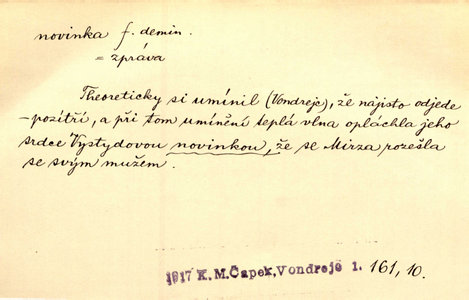 novinka f. demin.
= zpráva
Theoreticky si umínil (Vondrejc), že najisto odjede
pozítří, a při tom umínění teplá vlna opláchla jeho
srdce Vystydovou novinkou, že se Mirza rozešla
se svým mužem.
1917 K. M. Čapek, Vondrejc 1. 161, 10.